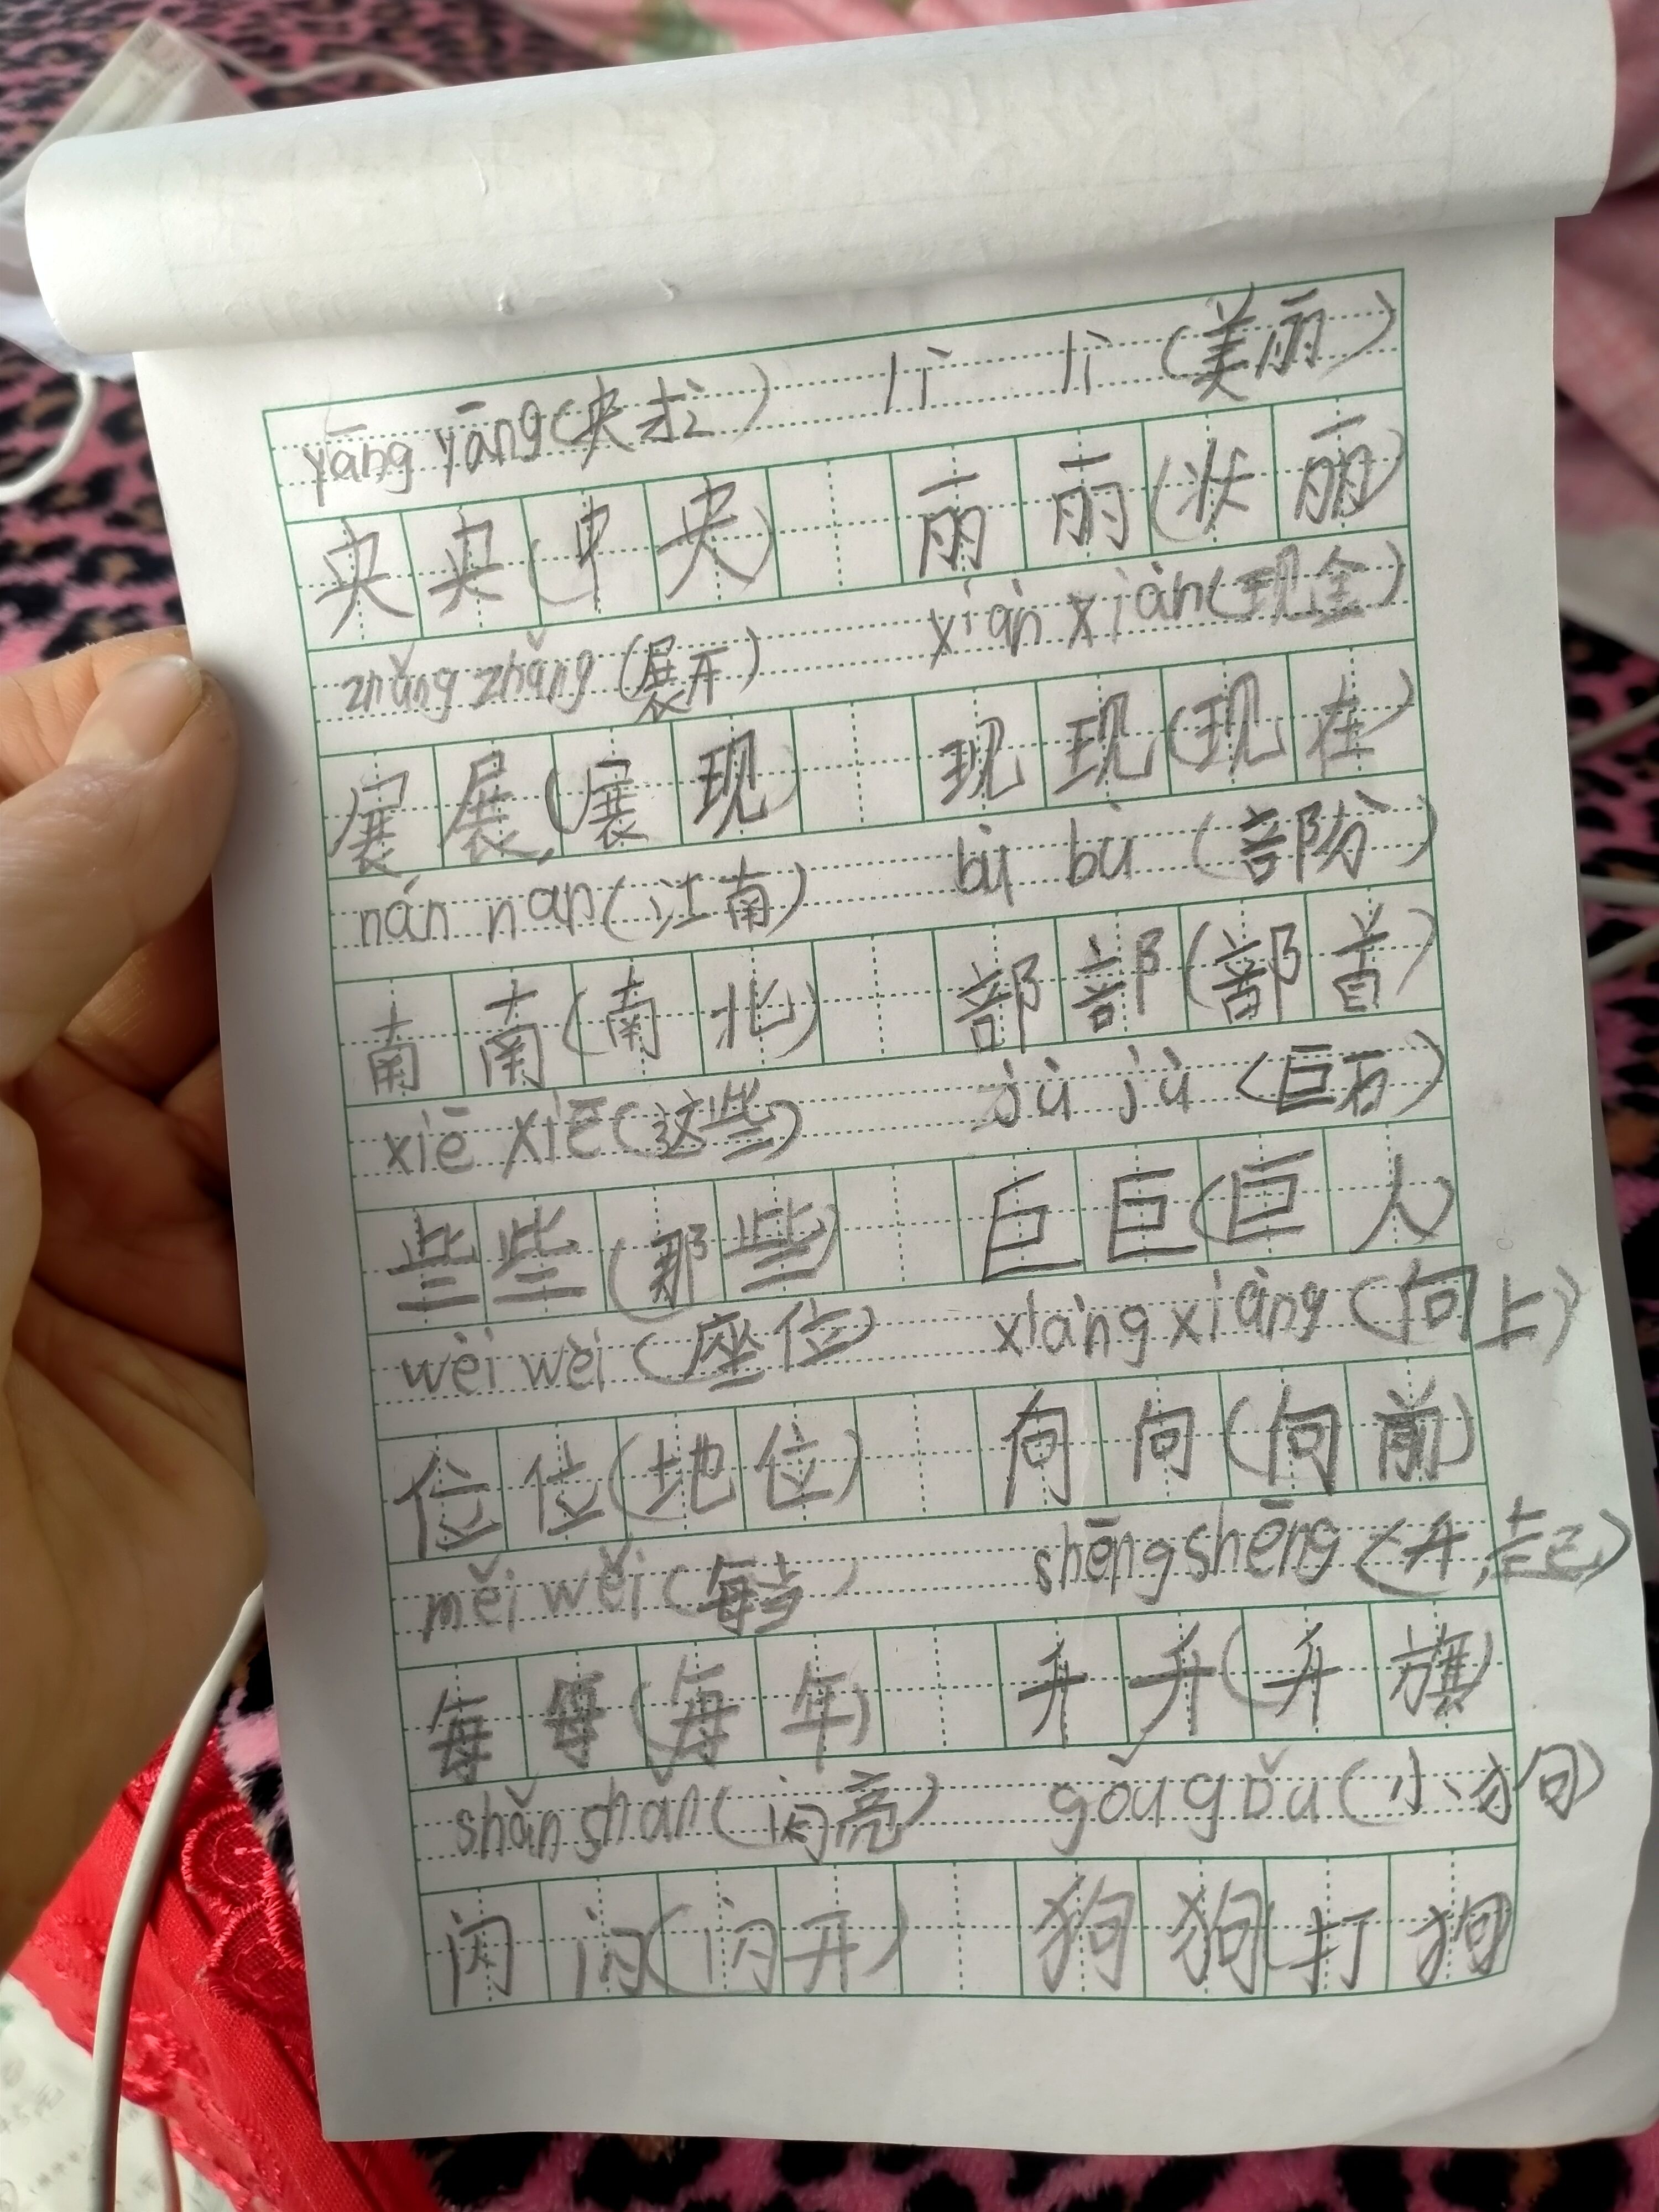 yāng yāng (央 ) lì lì (美丽)
央央(中央) 丽丽(状丽)
zhǎng zhǎng (展开) xiàn xiàn (现金)
展展(展现) 现现(现在)
nán nan (江南) bù bù (部份)
南南(南北) 部部(部首)
xiē xiē (这些) jù jù (巨石)
些些(那些) 巨巨(巨人)
wèi wèi (座位) xiàng xiàng (向上)
位位(地位) 向向(向前)
měi wěi (每当) shēng shēng (升起)
每每(每年) 升升(升旗)
shǎn shǎn (闪亮) gǒu gǒu (小狗)
闪闪(闪开) 狗狗(打狗)